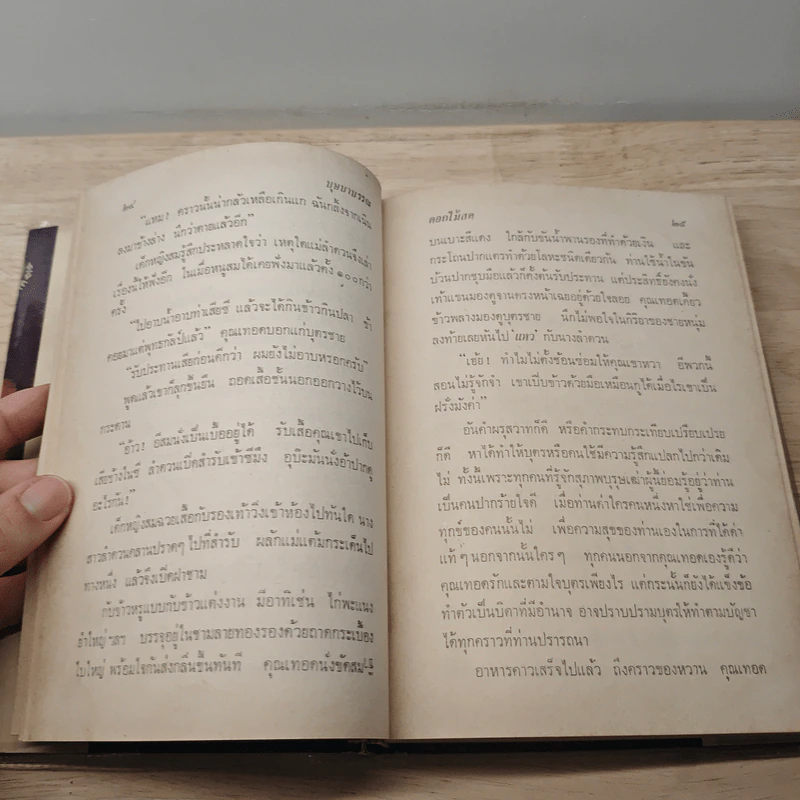 ๒๔
บุษบาบรรณ
"แหม! คราวนั้นน่ากลัวเหลือเกินแก ฉันกลิ้งจากเนิน
ลงมาข้างล่าง นึกว่าตายแล้วอีก"
เด็กหญิงสมรู้สึกประหลาดใจว่า เหตุใดแม่ลำดวนจึงเล่า
เรื่องนี้ให้ฟังอีก ในเมื่อหนูสมได้เคยฟังมาแล้วตั้ง ๑๐๐ กว่า
ครั้ง
"ไปอาบน้ำอาบท่าเสียซี แล้วจะได้กินข้าวกินปลา ข้า
คอยมาแต่พุทธกัลป์แล้ว" คุณเทอดบอกแก่บุตรชาย
"รับประทานเสียก่อนดีกว่า ผมยังไม่อาบหรอกครับ"
พูดแล้วเขาก็ลุกขึ้นยืน ถอดเสื้อชั้นนอกออกวางไว้บน
กระดาน
"อ้าว! อีสมนั่งเป็นเบื้ออยู่ได้ รับเสื้อคุณเขาไปเก็บ
เสียข้างในซี ลำดวนเปิดสำรับเข้าซีมึง อุบ๊ะมันนั่งอ้าปากดู
อะไรกัน!"
เด็กหญิงสมฉวยเสื้อกับรองเท้าวิ่งเข้าห้องไปทันใด นาง
สาวลำดวนคลานปราดๆ ไปที่สำรับ ผลักแม่แต้มกระเด็นไป
ทางหนึ่ง แล้วจึงเปิดฝาชาม
กับข้าวหรูแบบกับข้าวแต่งงาน มีอาทิเช่น ไก่พะแนง
ยำใหญ่ ฯลฯ บรรจุอยู่ในชามลายทองรองด้วยถาดกระเบื้อง
ใบใหญ่ พร้อมใจกันส่งกลิ่นขึ้นทันที คุณเทอดนั่งขัดสมาธิ
ดอกไม้สด
๒๕
บนเบาะสีแดง ใกล้กับขันน้ำพานรองที่ทำด้วยเงิน และ
กระโถนปากแตรทำด้วยโลหะชนิดเดียวกัน ท่านใช้น้ำในขัน
บ้วนปากชุบมือแล้วก็ตั้งต้นรับประทาน แต่ประสิทธิ์ยังคงนั่ง
เท้าแขนมองดูจานตรงหน้าเฉยอยู่ด้วยใจลอย คุณเทอดเคี้ยว
ข้าวพลางมองดูบุตรชาย นึกไม่พอใจในกิริยาของชายหนุ่ม
ลงท้ายเลยหันไป 'แหว' กับนางลำดวน
"เอ้ย! ทำไมไม่ตั้งช้อนซ่อมให้คุณเขาหวา อีพวกนี้
สอนไม่รู้จักจำ เขาเปิบข้าวด้วยมือเหมือนกูได้เมื่อไรเขาเป็น
ฝรั่งมังค่า"
อันคำผรุสวาทก็ดี หรือคำกระทบกระเทียบเปรียบเปรย
ก็ดี หาได้ทำให้บุตรหรือคนใช้มีความรู้สึกแปลกไปกว่าเดิม
ไม่ ทั้งนี้เพราะทุกคนที่รู้จักสุภาพบุรุษเฒ่าผู้นี้ย่อมรู้อยู่ว่าท่าน
เป็นคนปากร้ายใจดี เมื่อท่านด่าใครคนหนึ่งหาใช่เพื่อความ
ทุกข์ของคนนั้นไม่ เพื่อความสุขของท่านเองในการที่ได้ด่า
แท้ ๆ นอกจากนั้นใคร ๆ ทุกคนนอกจากคุณเทอดเองรู้ดีว่า
คุณเทอดรักและตามใจบุตรเพียงไร แต่กระนั้นก็ยังได้แข็งข้อ
ทำตัวเป็นบิดาที่มีอำนาจ อาจปราบปรามบุตรให้ทำตามบัญชา
ได้ทุกคราวที่ท่านปรารถนา
อาหารคาวเสร็จไปแล้ว ถึงคราวของหวาน คุณเทอด